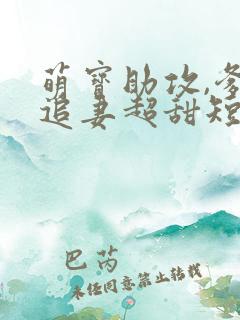 萌寶助攻,爹
追妻超甜短
巴芮
未经同意禁止转载